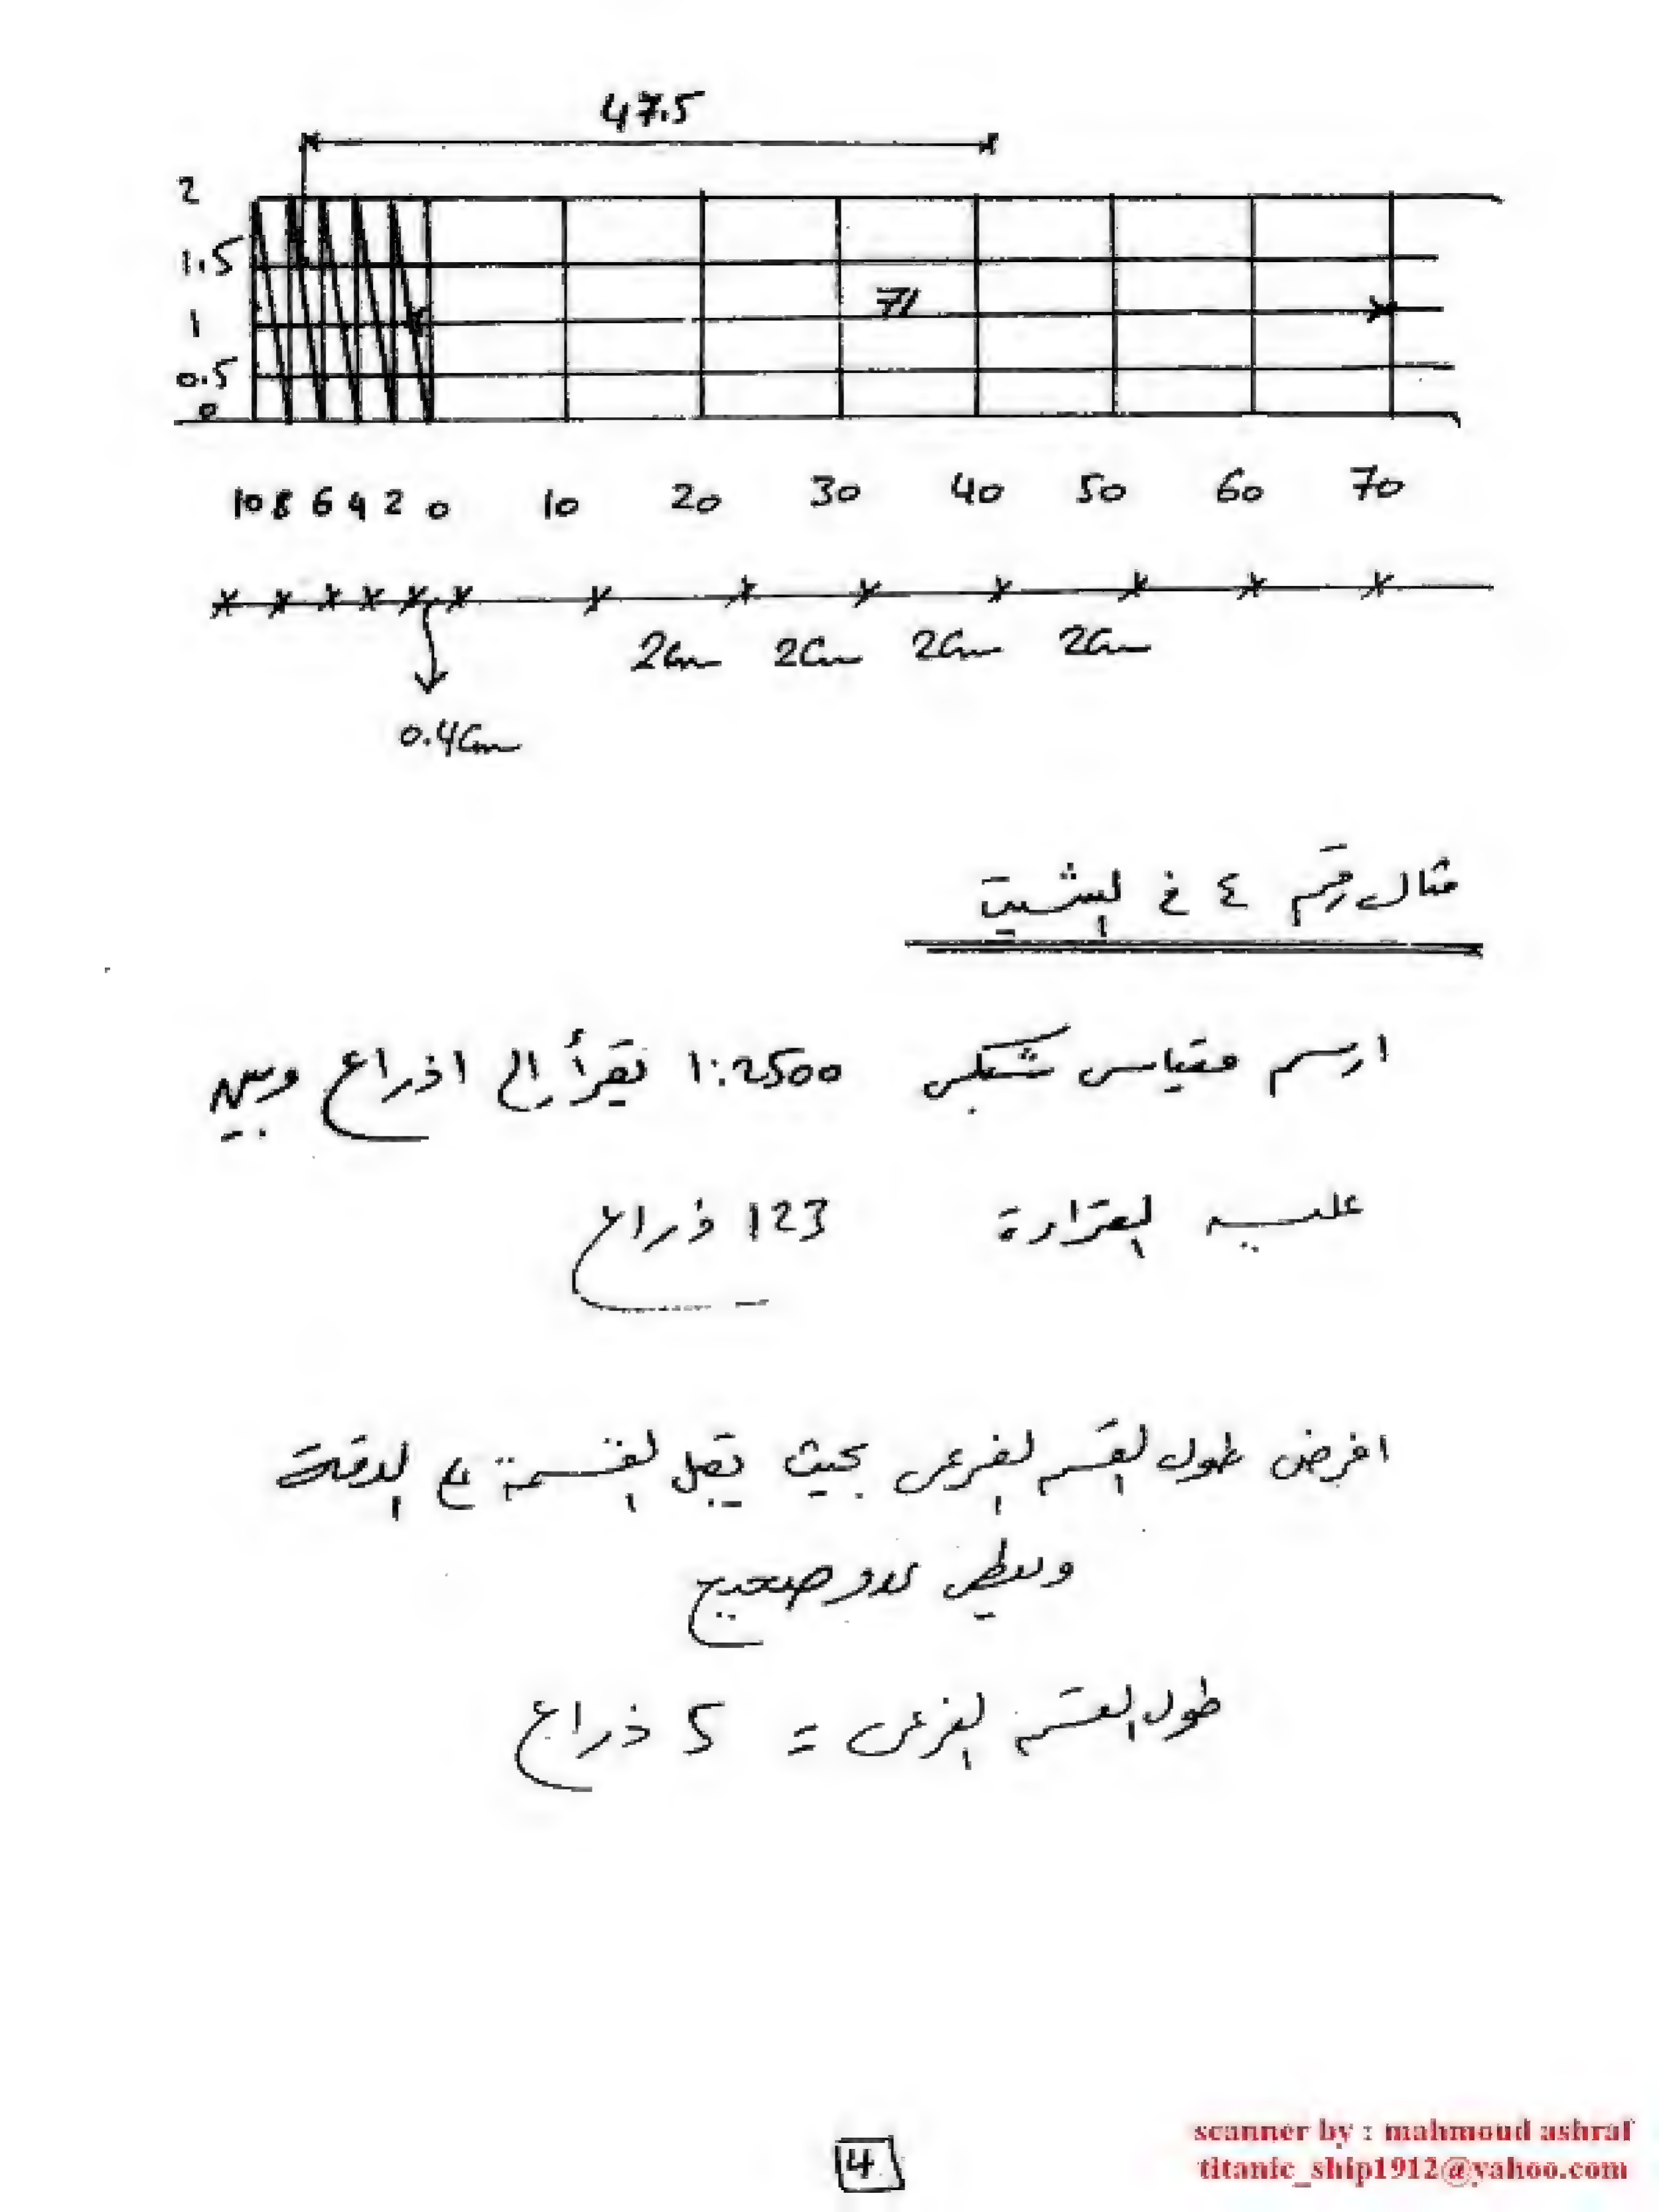 47.5
2
1.5
71
1
0.5
0
10 8 6 4 2 0 10 20 30 40 50 60 70
2cm 2cm 2cm 2cm
0.4cm
مثال رقم ٤ في الشيت
ارسم مقياس شبكى 1:2500 تقرأ إلى 1 ذراع وبين
عليه القراءة 123 ذراع
افرض طول القسم الفرعى بحيث تقبل القسمة على الدقة
وتعطى عدد صحيح
طول القسم الفرعى = 5 ذراع
4
scanner by : mahmoud ashraf
titanic_ship1912@yahoo.com